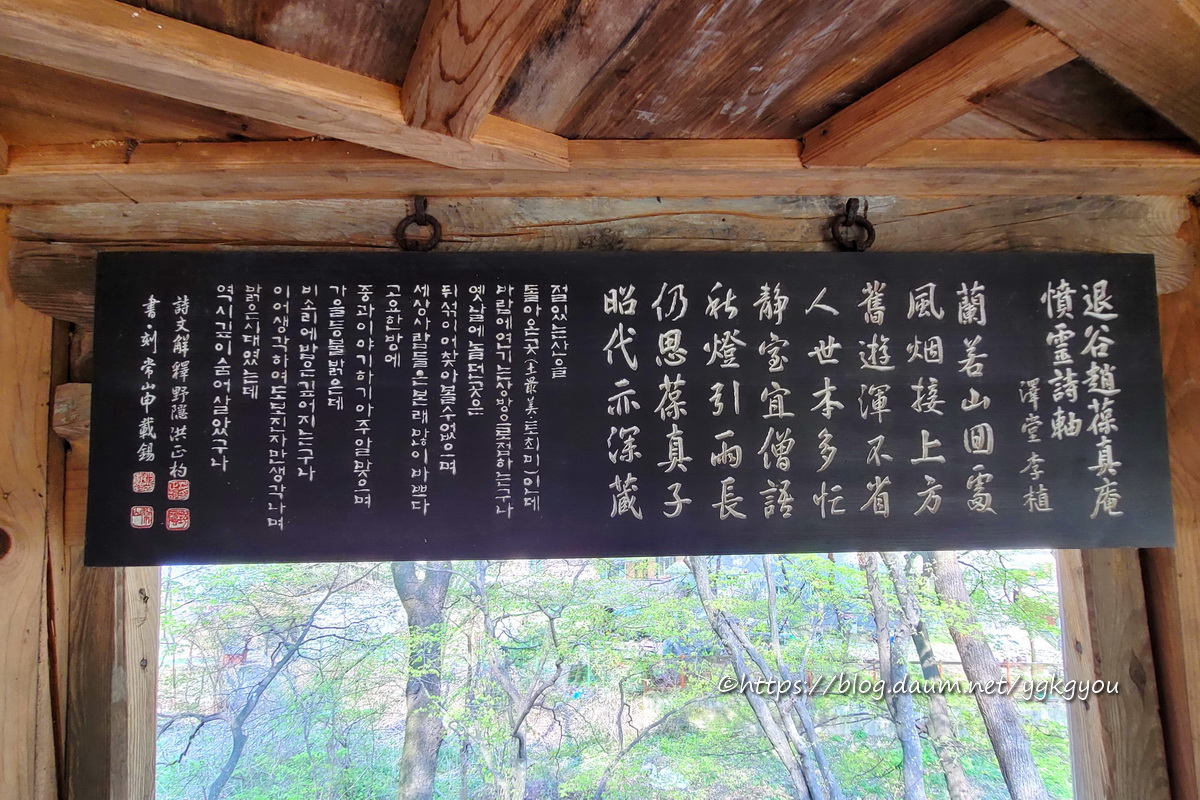 退谷趙葆真庵
憤靈詩軸
澤堂 李植
蘭若山回處
風烟接上方
舊遊渾不省
人世本多忙
静室宜僧語
秋燈引雨長
仍思葆真子
昭代亦深藏
절있는산을
돌아온곳(土最美·토최미)인데
바람에연기는상방으로접하는구나
옛날에놀던곳은
뒤섞이어찾아볼수없으며
세상사람들은본래많이바쁘다
고요한방에
중과이야기하기아주알맞으며
가을등불밝은데
비소리에밤은깊어지는구나
이어생각하여도보진자만생각나며
맑은시대였는데
역시깊이숨어살았구나
詩文解釋野隱洪正杓
書·刻 常山申載錫
©https://blog.daum.net/ygkgyou